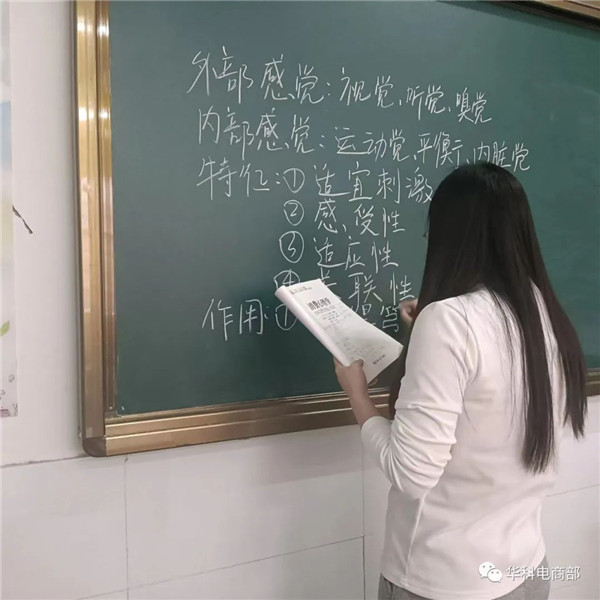 外部感觉：视觉、听觉、嗅觉
内部感觉：运动觉、平衡、内脏觉
特征：①适宜刺激
②感受性
③适应性
联性
作用：①
消费心理学
华科电商部